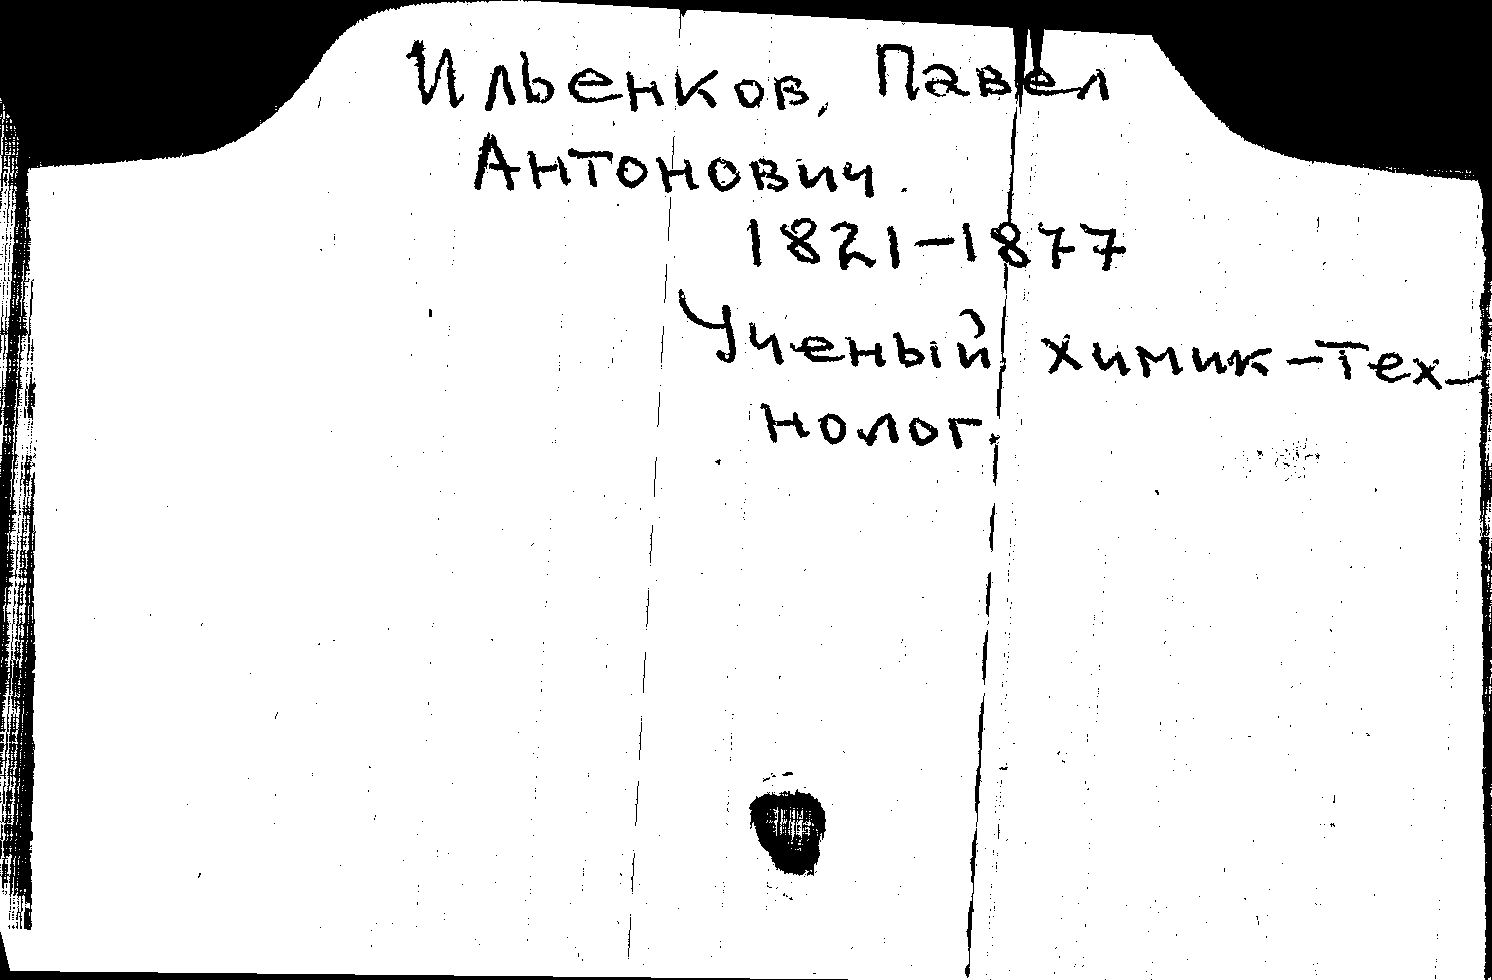 Ильенков, Павел
Антонович.
1821-1877
Ученый химик-тех-
нолог.